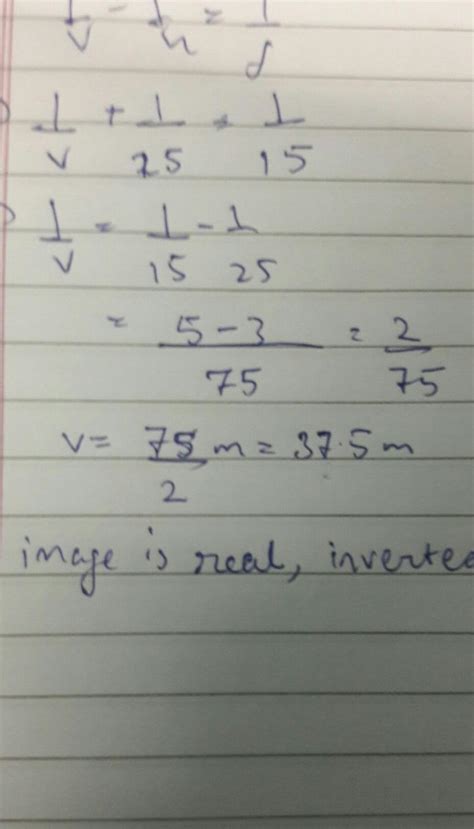 1/v - 1/u = 1/f
1/v + 1/25 = 1/15
1/v = 1/15 - 1/25
= 5-3/75 = 2/75
v = 75/2 m = 37.5 m
image is real, inverted